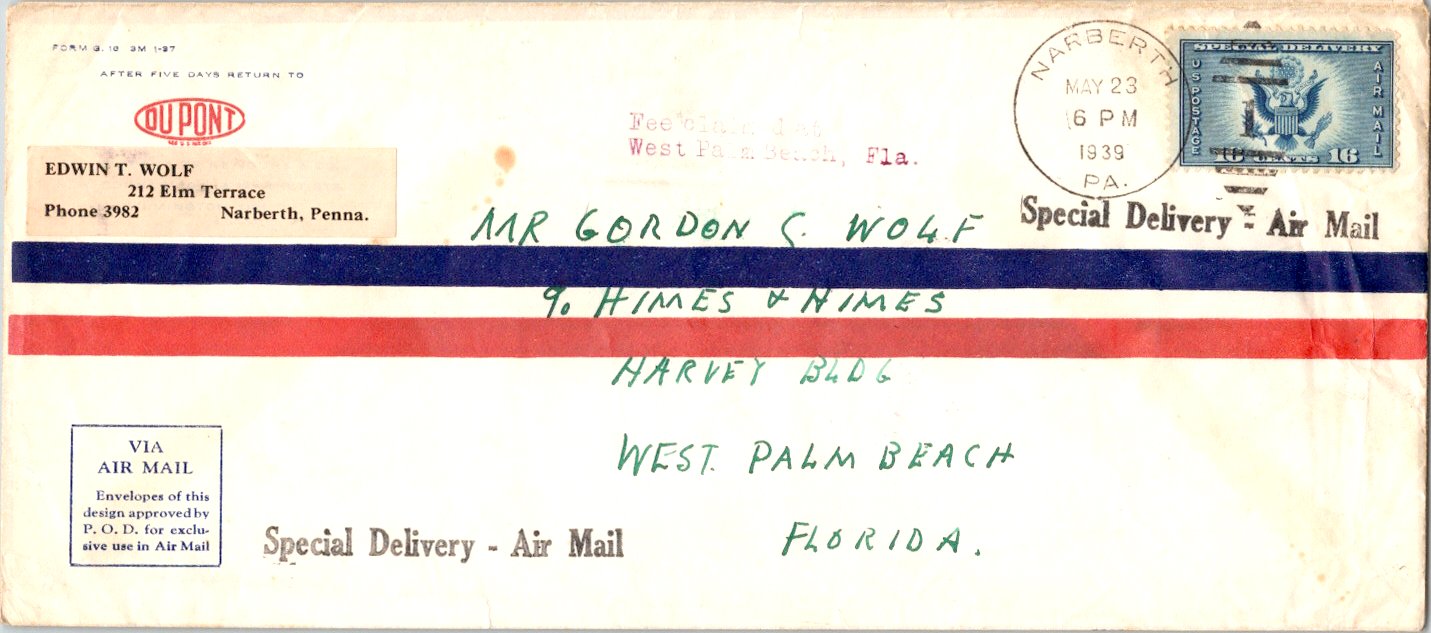 FORM G. 10 3M 1-37
AFTER FIVE DAYS RETURN TO
DU PONT
EDWIN T. WOLF
212 Elm Terrace
Phone 3982 Narberth, Penna.
Fee claimed at
West Palm Beach, Fla.
NARBERTH
MAY 23
6 PM
1939
PA.
SPECIAL DELIVERY
US POSTAGE
AIR MAIL
16 CENTS 16
1
Special Delivery - Air Mail
MR GORDON S. WOLF
% HIMES & HIMES
HARVEY BLDG
WEST. PALM BEACH
FLORIDA.
VIA
AIR MAIL
Envelopes of this
design approved by
P. O. D. for exclu-
sive use in Air Mail
Special Delivery - Air Mail